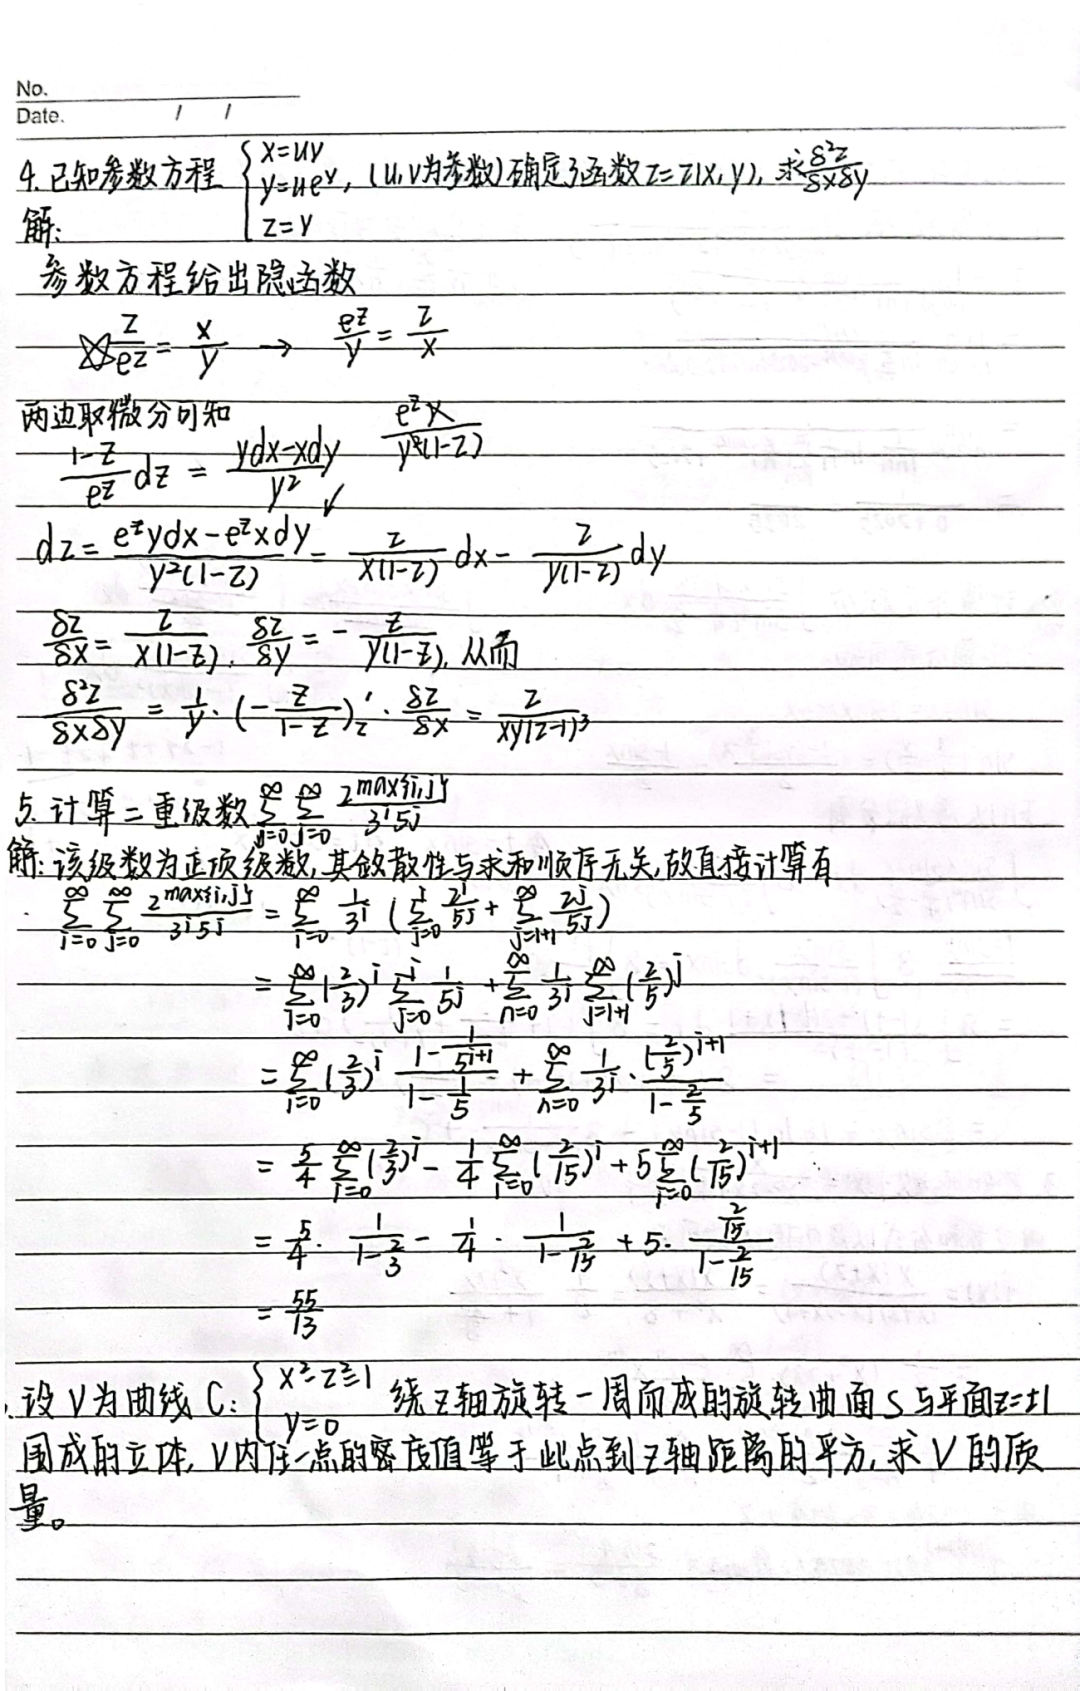 No.
Date. / /
4. 已知参数方程 { x=uv, y=ue^v, z=v , (u,v为参数)确定了函数z=z(x,y), 求 δ²z/δxδy
解:
参数方程给出隐函数
z/e^z = x/y → e^z/y = z/x
两边取微分可知 e^z x/y²(1-z)
(1-z)/e^z dz = (ydx-xdy)/y²
dz = (e^z ydx - e^z xdy)/(y²(1-z)) = z/(x(1-z)) dx - z/(y(1-z)) dy
δz/δx = z/(x(1-z)), δz/δy = - z/(y(1-z)), 从而
δ²z/δxδy = 1/y · (- z/(1-z))'_z · δz/δx = z/(xy(z-1)³)
5. 计算二重级数 ∑_{i=0}^∞ ∑_{j=0}^∞ 2^{max{i,j}}/(3^i 5^j)
解: 该级数为正项级数, 其敛散性与求和顺序无关, 故直接计算有
∑_{i=0}^∞ ∑_{j=0}^∞ 2^{max{i,j}}/(3^i 5^j) = ∑_{i=0}^∞ 1/3^i (∑_{j=0}^i 2^i/5^j + ∑_{j=i+1}^∞ 2^j/5^j)
= ∑_{i=0}^∞ (2/3)^i ∑_{j=0}^i 1/5^j + ∑_{n=0}^∞ 1/3^i ∑_{j=i+1}^∞ (2/5)^j
= ∑_{i=0}^∞ (2/3)^i (1 - 1/5^{i+1})/(1 - 1/5) + ∑_{n=0}^∞ 1/3^i · (2/5)^{i+1}/(1 - 2/5)
= 5/4 ∑_{i=0}^∞ (2/3)^i - 1/4 ∑_{i=0}^∞ (2/15)^i + 5 ∑_{i=0}^∞ (2/15)^{i+1}
= 5/4 · 1/(1 - 2/3) - 1/4 · 1/(1 - 2/15) + 5 · (2/15)/(1 - 2/15)
= 55/13
设V为曲线C: { x²-z²=1, y=0 绕z轴旋转一周而成的旋转曲面S与平面z=±1
围成的立体, V内任一点的密度值等于此点到z轴距离的平方, 求V的质
量。